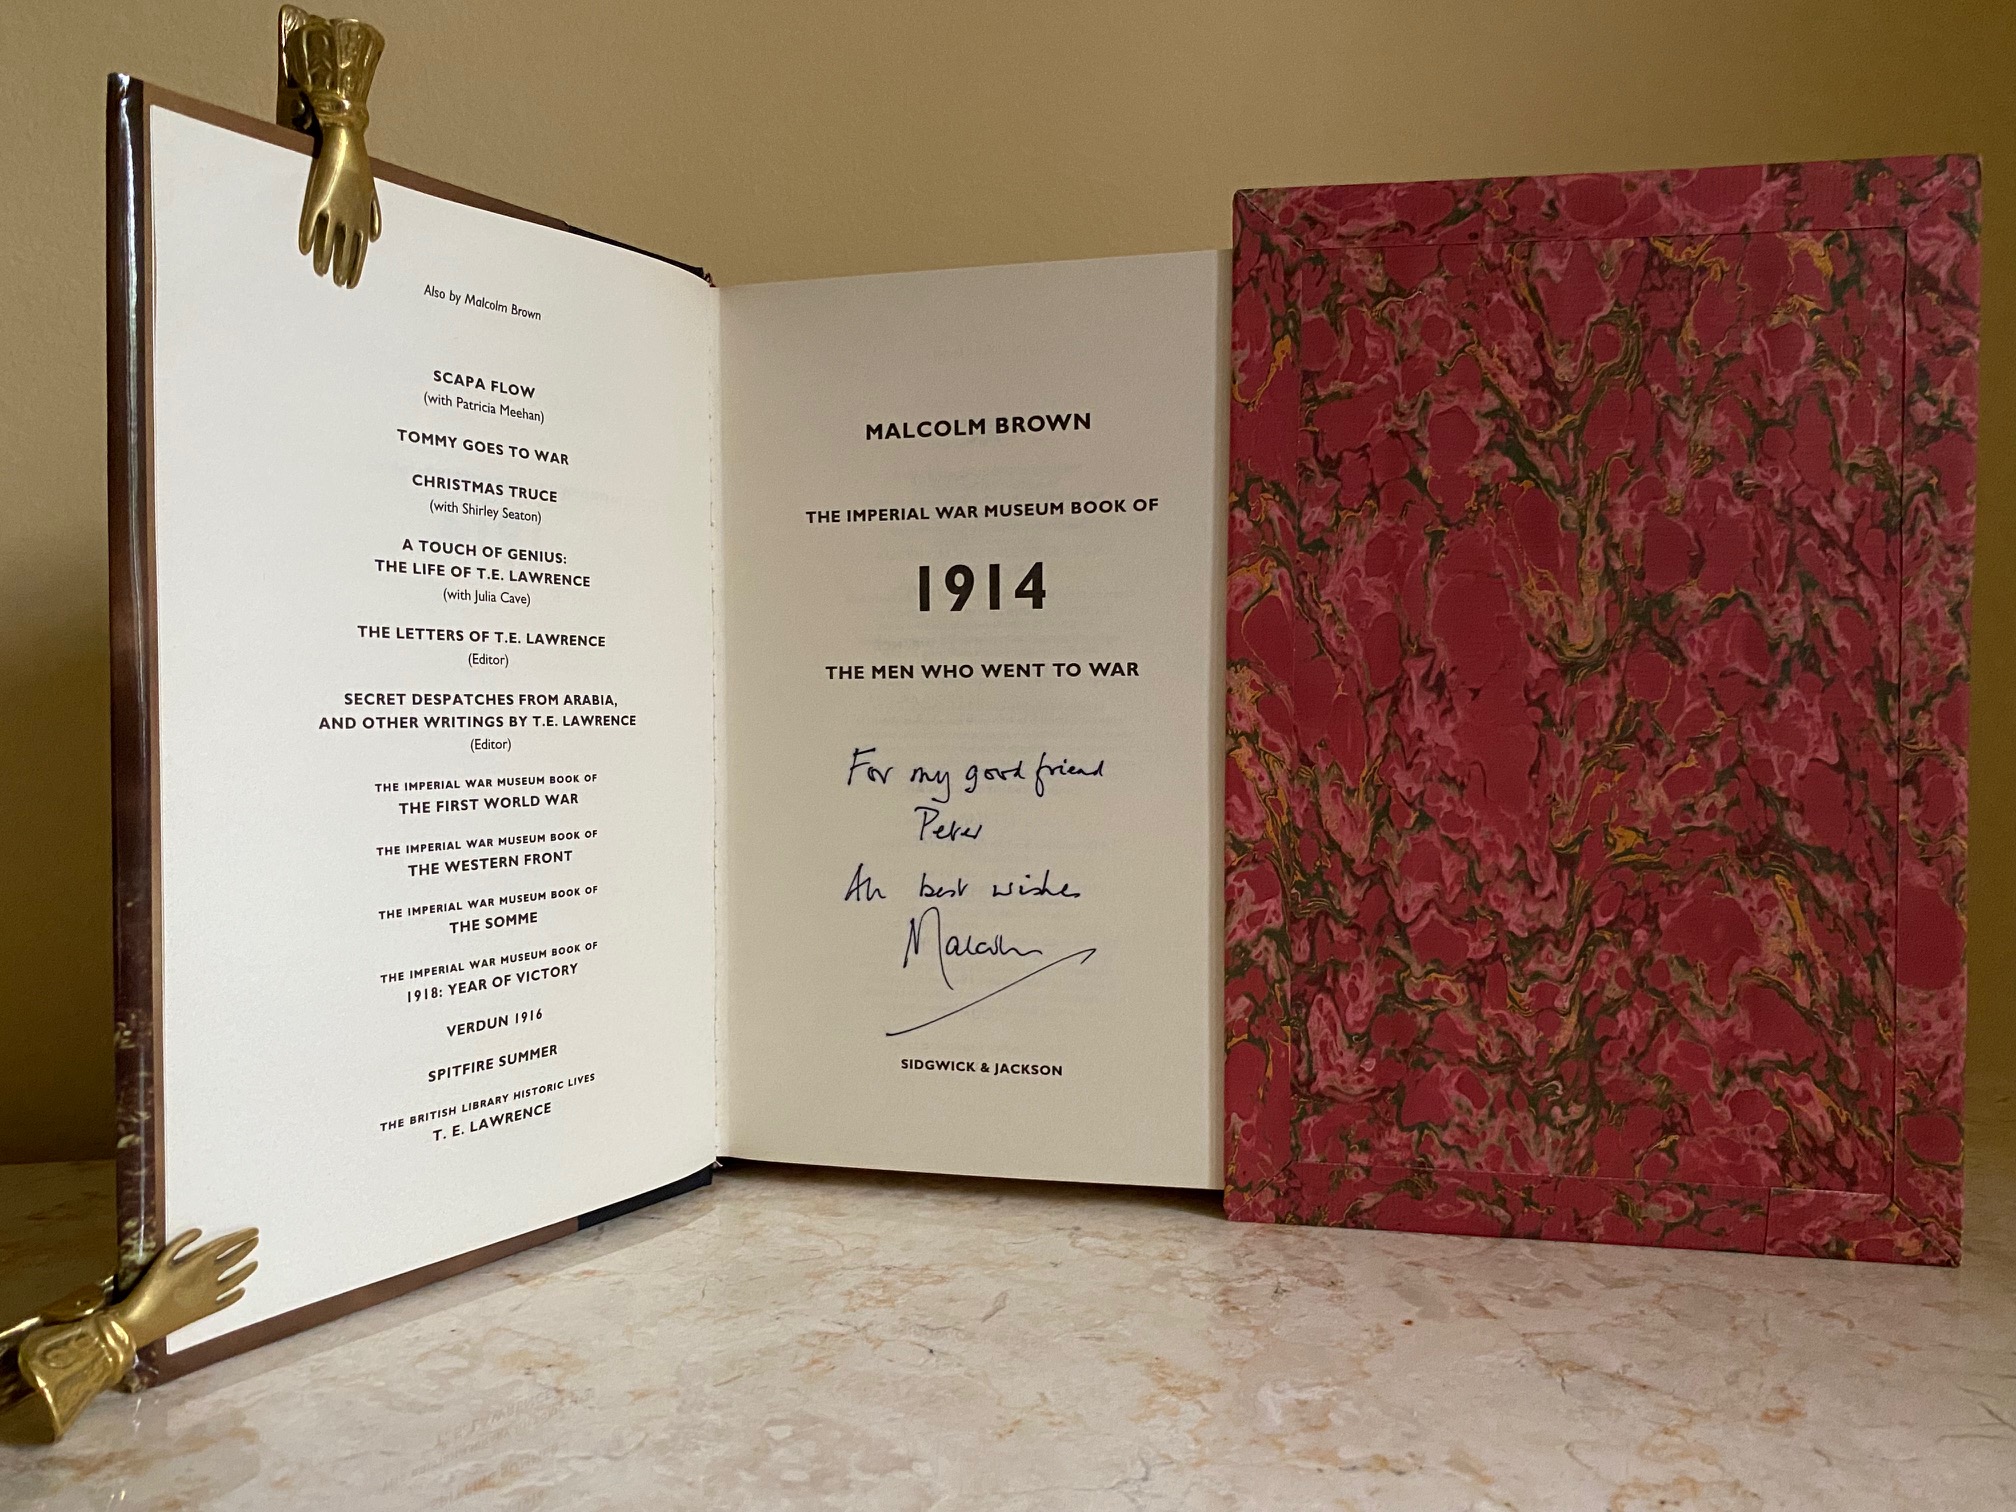 Also by Malcolm Brown
SCAPA FLOW
(with Patricia Meehan)
TOMMY GOES TO WAR
CHRISTMAS TRUCE
(with Shirley Seaton)
A TOUCH OF GENIUS:
THE LIFE OF T.E. LAWRENCE
(with Julia Cave)
THE LETTERS OF T.E. LAWRENCE
(Editor)
SECRET DESPATCHES FROM ARABIA,
AND OTHER WRITINGS BY T.E. LAWRENCE
(Editor)
THE IMPERIAL WAR MUSEUM BOOK OF
THE FIRST WORLD WAR
THE IMPERIAL WAR MUSEUM BOOK OF
THE WESTERN FRONT
THE IMPERIAL WAR MUSEUM BOOK OF
THE SOMME
THE IMPERIAL WAR MUSEUM BOOK OF
1918: YEAR OF VICTORY
VERDUN 1916
SPITFIRE SUMMER
THE BRITISH LIBRARY HISTORIC LIVES
T. E. LAWRENCE
MALCOLM BROWN
THE IMPERIAL WAR MUSEUM BOOK OF
1914
THE MEN WHO WENT TO WAR
For my good friend
Peter
All best wishes
Malcolm
SIDGWICK & JACKSON